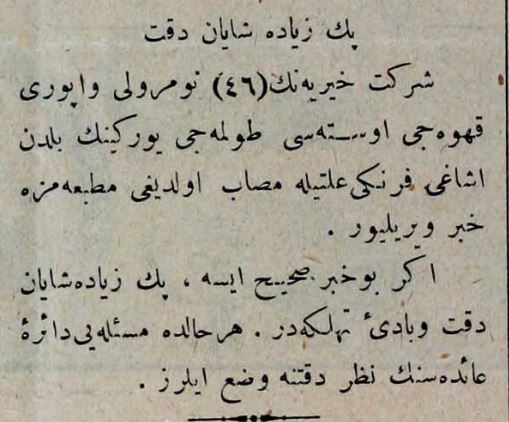 پك زياده شايان دقت
شركت خيريه‌نك (٤٦) نومرولی واپوری
قهوه‌جی اوسته‌سی طولمه‌جی يوركينك بلدن
اشاغی فرنكی علتيله مصاب اولديغی مطبعه‌مزه
خبر ويريليور .
اكر بو خبر صحيح ايسه ، پك زياده شايان
دقت وبادئ تهلكه‌در . هر حالده مسئله‌يی دائرهٔ
عائده‌سنك نظر دقتنه وضع ايلرز .